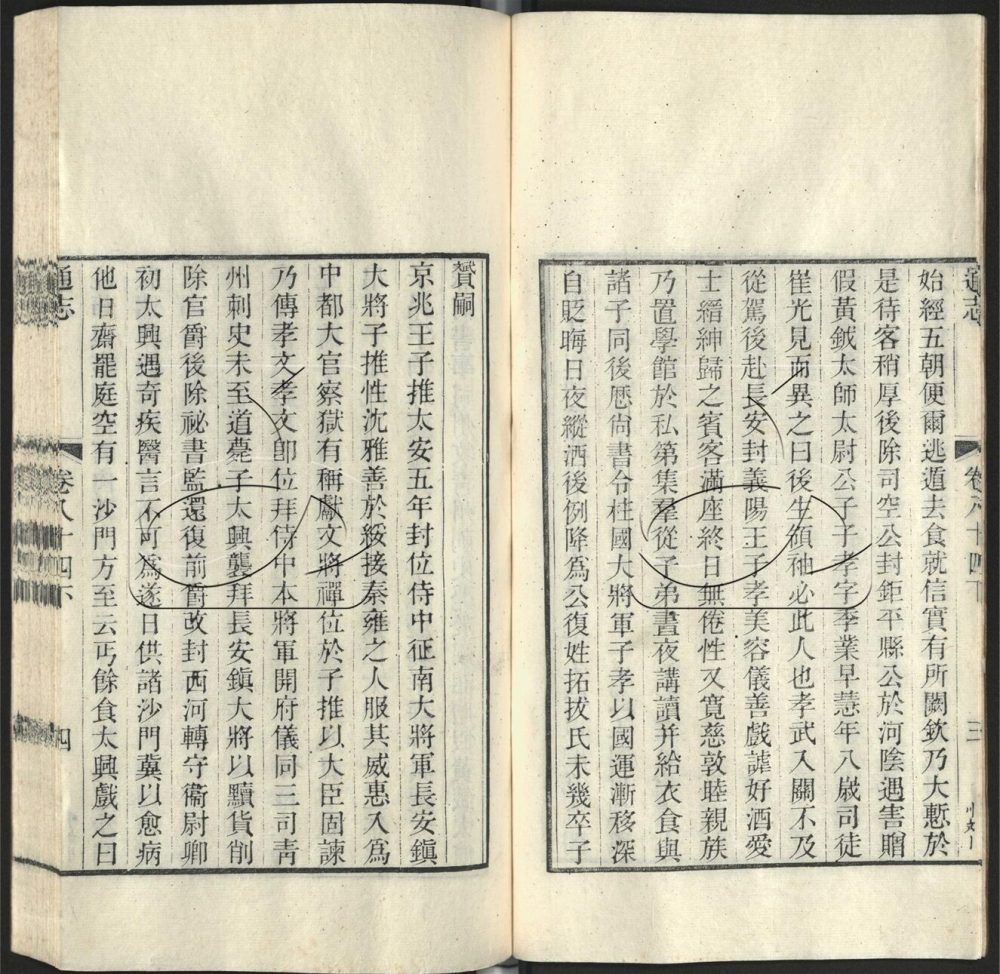 通志
卷八十四下
三
始經五朝便爾逃遁去食就信實有所闕欽乃大慙於
是待客稍厚後除司空公封鉅平縣公於河陰遇害贈
假黃鉞太師太尉公子子孝字季業早慧年八歲司徒
崔光見而異之曰後生領袖必此人也孝武入關不及
從駕後赴長安封義陽王子孝美容儀善戲謔好酒愛
士縉紳歸之賓客滿座終日無倦性又寬慈敦睦親族
乃置學館於私第集羣從子弟晝夜講讀并給衣食與
諸子同後歷尚書令柱國大將軍子孝以國運漸移深
自貶晦日夜縱酒後例降為公復姓拓拔氏未幾卒子
贇嗣
京兆王子推太安五年封位侍中征南大將軍長安鎮
大將子推性沈雅善於綏接秦雍之人服其威惠入為
中都大官察獄有稱獻文將禪位於子推以大臣固諫
乃傳孝文孝文卽位拜侍中本將軍開府儀同三司青
州刺史未至道薨子太興襲拜長安鎮大將以黷貨削
除官爵後除祕書監還復前爵改封西河轉守衞尉卿
初太興遇奇疾醫言不可為遂日供諸沙門冀以愈病
他日齋罷庭空有一沙門方至云丐餘食太興戲之曰
通志
卷八十四下
四